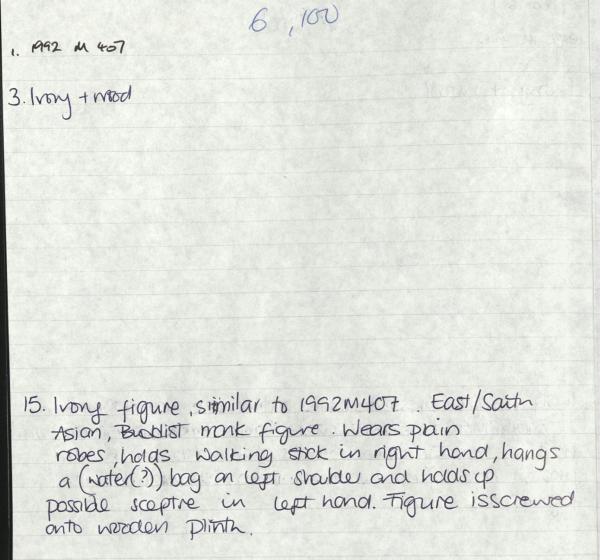 6,100
1. 1992 M 407
3. Ivory + wood
15. Ivory figure, similar to 1992M407. East/South
Asian, Buddist monk figure. Wears plain
robes, holds walking stick in right hand, hangs
a (water(?)) bag on left shoulder and holds up
possible sceptre in left hand. Figure is screwed
onto wooden plinth.